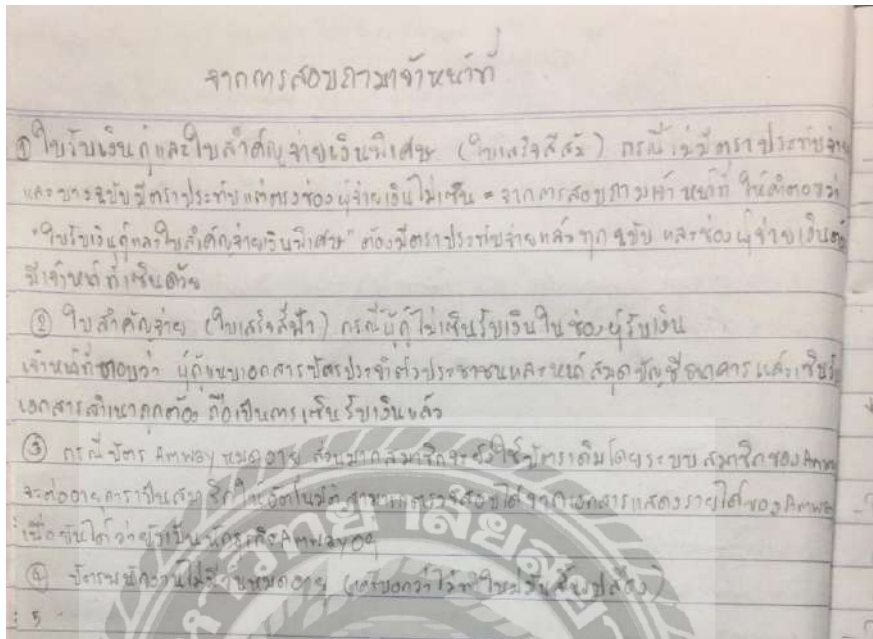 จากการสอบถามเจ้าหน้าที่
① ใบรับเงินกู้และใบสำคัญจ่ายเงินพิเศษ (ใบเสร็จสีส้ม) กรณีไม่มีตราประทับจ่าย
และบางฉบับมีตราประทับแต่ตรงช่องผู้จ่ายเงินไม่เซ็น = จากการสอบถามเจ้าหน้าที่ ให้คำตอบว่า
"ใบรับเงินกู้และใบสำคัญจ่ายเงินพิเศษ" ต้องมีตราประทับจ่ายแล้วทุกฉบับ และช่องผู้จ่ายเงินต้อง
มีเจ้าหน้าที่เซ็นด้วย
② ใบสำคัญจ่าย (ใบเสร็จสีฟ้า) กรณีผู้กู้ไม่เซ็นรับเงินในช่องผู้รับเงิน
เจ้าหน้าที่ตอบว่า ผู้กู้แนบเอกสารบัตรประจำตัวประชาชนและหน้าสมุดบัญชีธนาคาร แล้วเซ็นรับ
เอกสารสำเนาถูกต้อง ถือเป็นการเซ็นรับเงินแล้ว
③ กรณีบัตร Amway หมดอายุ ส่วนมากสมาชิกจะยังใช้บัตรเดิมโดยระบบสมาชิกของ Amw
จะต่ออายุการเป็นสมาชิกให้อัตโนมัติ สามารถตรวจสอบได้จากเอกสารแสดงรายได้ของ Amwa
เพื่อยืนได้ว่ายังเป็นนักธุรกิจ Amway อยู่
④ บัตรพนักงานไม่มีวันหมดอายุ
5
มหาวิทยาลัย